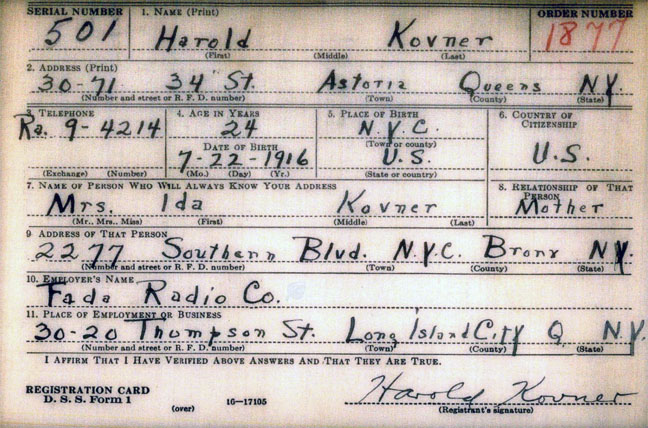 SERIAL NUMBER 1. NAME (Print) ORDER NUMBER
501 Harold Kovner 1877
(First) (Middle) (Last)
2. ADDRESS (Print)
30-71 34 St. Astoria Queens N.Y.
(Number and street or R. F. D. number) (Town) (County) (State)
3. TELEPHONE 4. AGE IN YEARS 5. PLACE OF BIRTH 6. COUNTRY OF CITIZENSHIP
Ra. 9-4214 24 N.Y.C. U.S.
(Town or county)
DATE OF BIRTH
7-22-1916 U.S.
(Exchange) (Number) (Mo.) (Day) (Yr.) (State or country)
7. NAME OF PERSON WHO WILL ALWAYS KNOW YOUR ADDRESS 8. RELATIONSHIP OF THAT PERSON
Mrs. Ida Kovner Mother
(Mr., Mrs., Miss) (First) (Middle) (Last)
9. ADDRESS OF THAT PERSON
2277 Southern Blvd. N.Y.C. Bronx N.Y.
(Number and street or R. F. D. number) (Town) (County) (State)
10. EMPLOYER'S NAME
Fada Radio Co.
11. PLACE OF EMPLOYMENT OR BUSINESS
30-20 Thompson St. Long Island City Q N.Y.
(Number and street or R. F. D. number) (Town) (County) (State)
I AFFIRM THAT I HAVE VERIFIED ABOVE ANSWERS AND THAT THEY ARE TRUE.
REGISTRATION CARD
D. S. S. Form 1 (over) 16-17105
Harold Kovner
(Registrant's signature)